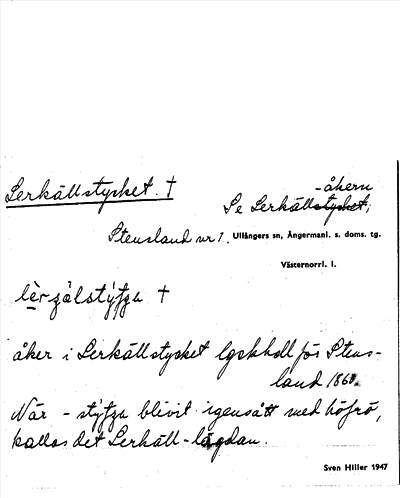 Lerkällstycket. †
-åkern
Se Lerkällstycket,
Stensland nr 1. Ullångers sn, Ångermanl. s. doms. tg.
Västernorrl. l.
åker i Lerkällstycket lgskholl för Stens-
land 1860.
När - stýtʒa blivit igensått med höfrö,
kallas det Lerkäll-lägdan.
Sven Hiller 1947